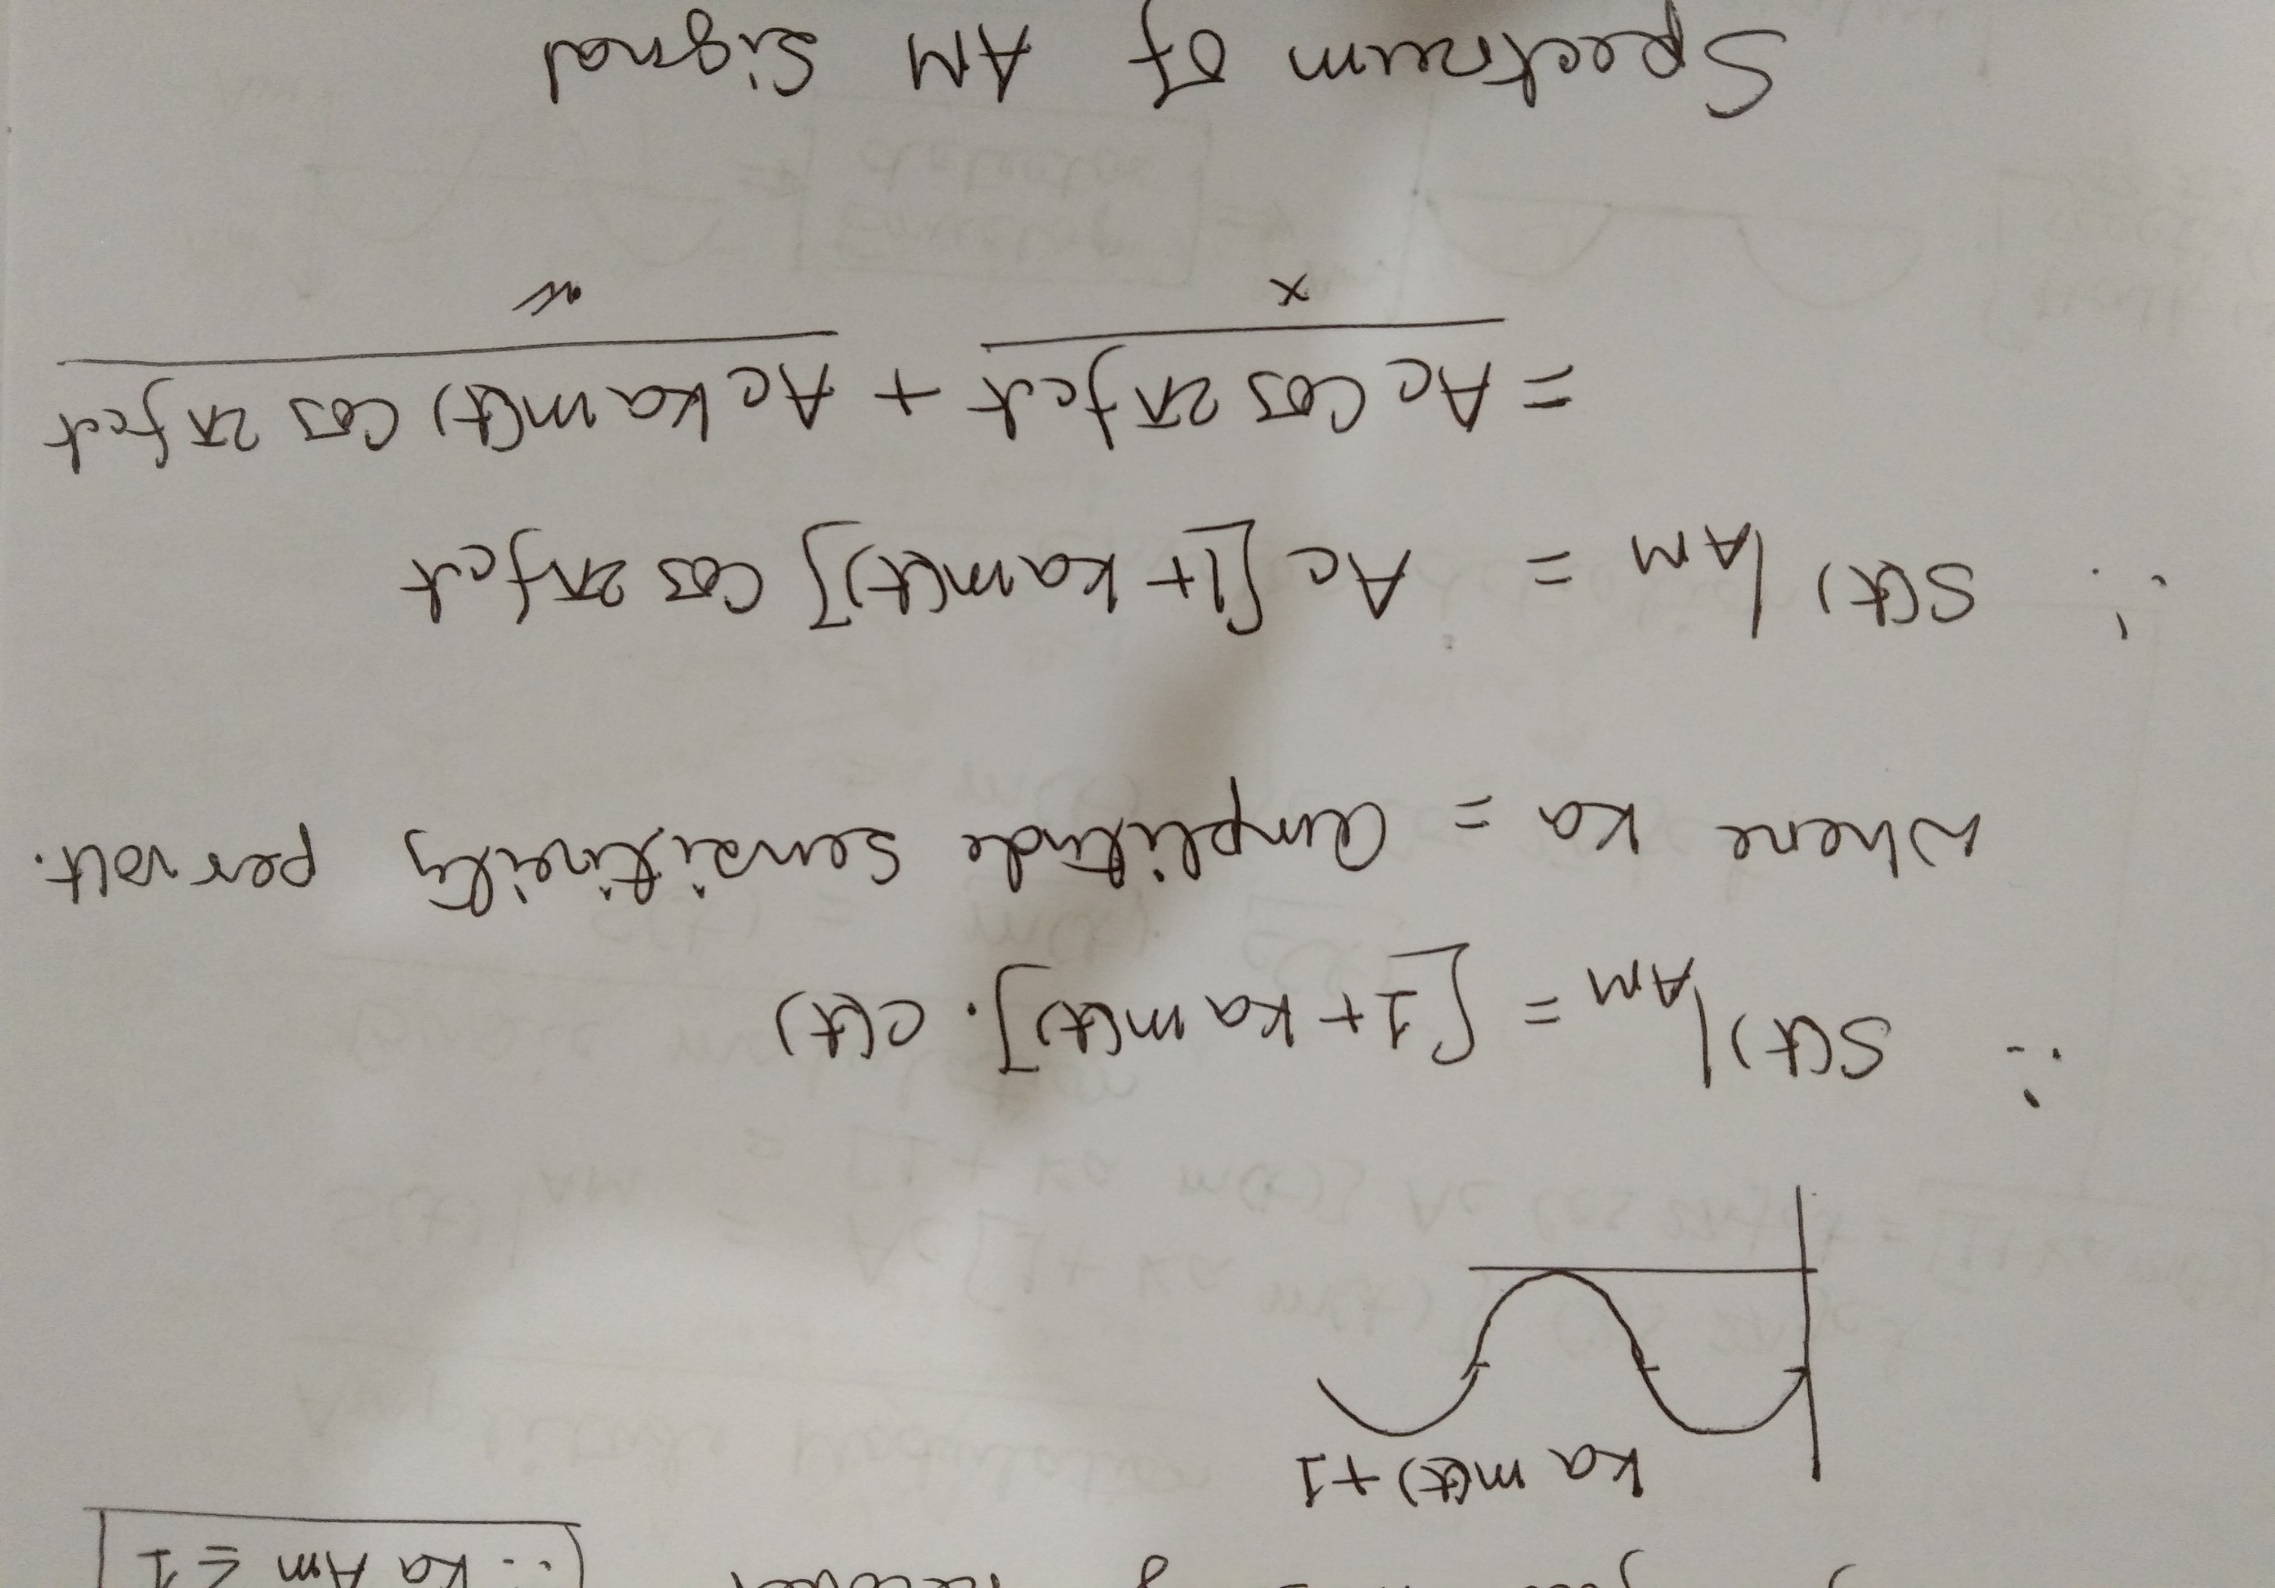 recover ∴ ka Am ≤ 1
ka m(t) + 1
∴ S(t)|AM = [1 + ka m(t)] . c(t)
where ka = amplitude sensitivity per volt.
∴ S(t)|AM = Ac [1 + ka m(t)] cos 2π fct
= Ac cos 2π fct + Ac ka m(t) cos 2π fct
x
Spectrum of AM signal